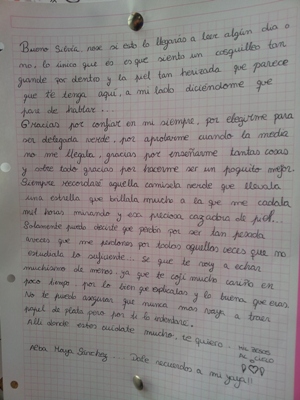 Bueno Silvia, nose si esto lo llegarás a leer algún dia o
no, lo único que es es que siento un cosquilleo tan
grande por dentro y la piel tan herizada que parece
que te tenga aquí, a mi lado diciéndome que
pare de hablar...
Gracias por confiar en mi siempre, por elegirme para
ser delegada verde, por aprobarme cuando la media
no me llegaba, gracias por enseñarme tantas cosas
y sobre todo gracias por hacerme ser un poquito mejor.
Siempre recordaré aquella camiseta verde que llevaba
una estrella que brillaba mucho a la que me quedaba
mil horas mirando y esa preciosa cazadora de piel.
Solamente puedo decirte que perdón por ser tan pesada
aveces que me perdones por todas aquellas veces que no
estudiaba lo suficiente. Se que te voy a echar
muchisimo de menos, ya que te cojí mucho cariño en
poco tiempo, por lo bien que explicabas y lo buena que eras.
No te puedo asegurar que nunca mas vaya a traer
papel de plata pero por ti lo intentaré.
Alli donde estes cuidate mucho, te quiero...
MIL BESOS
AL CIELO
Alba Moya Sánchez... Dale recuerdos a mi yaya!!